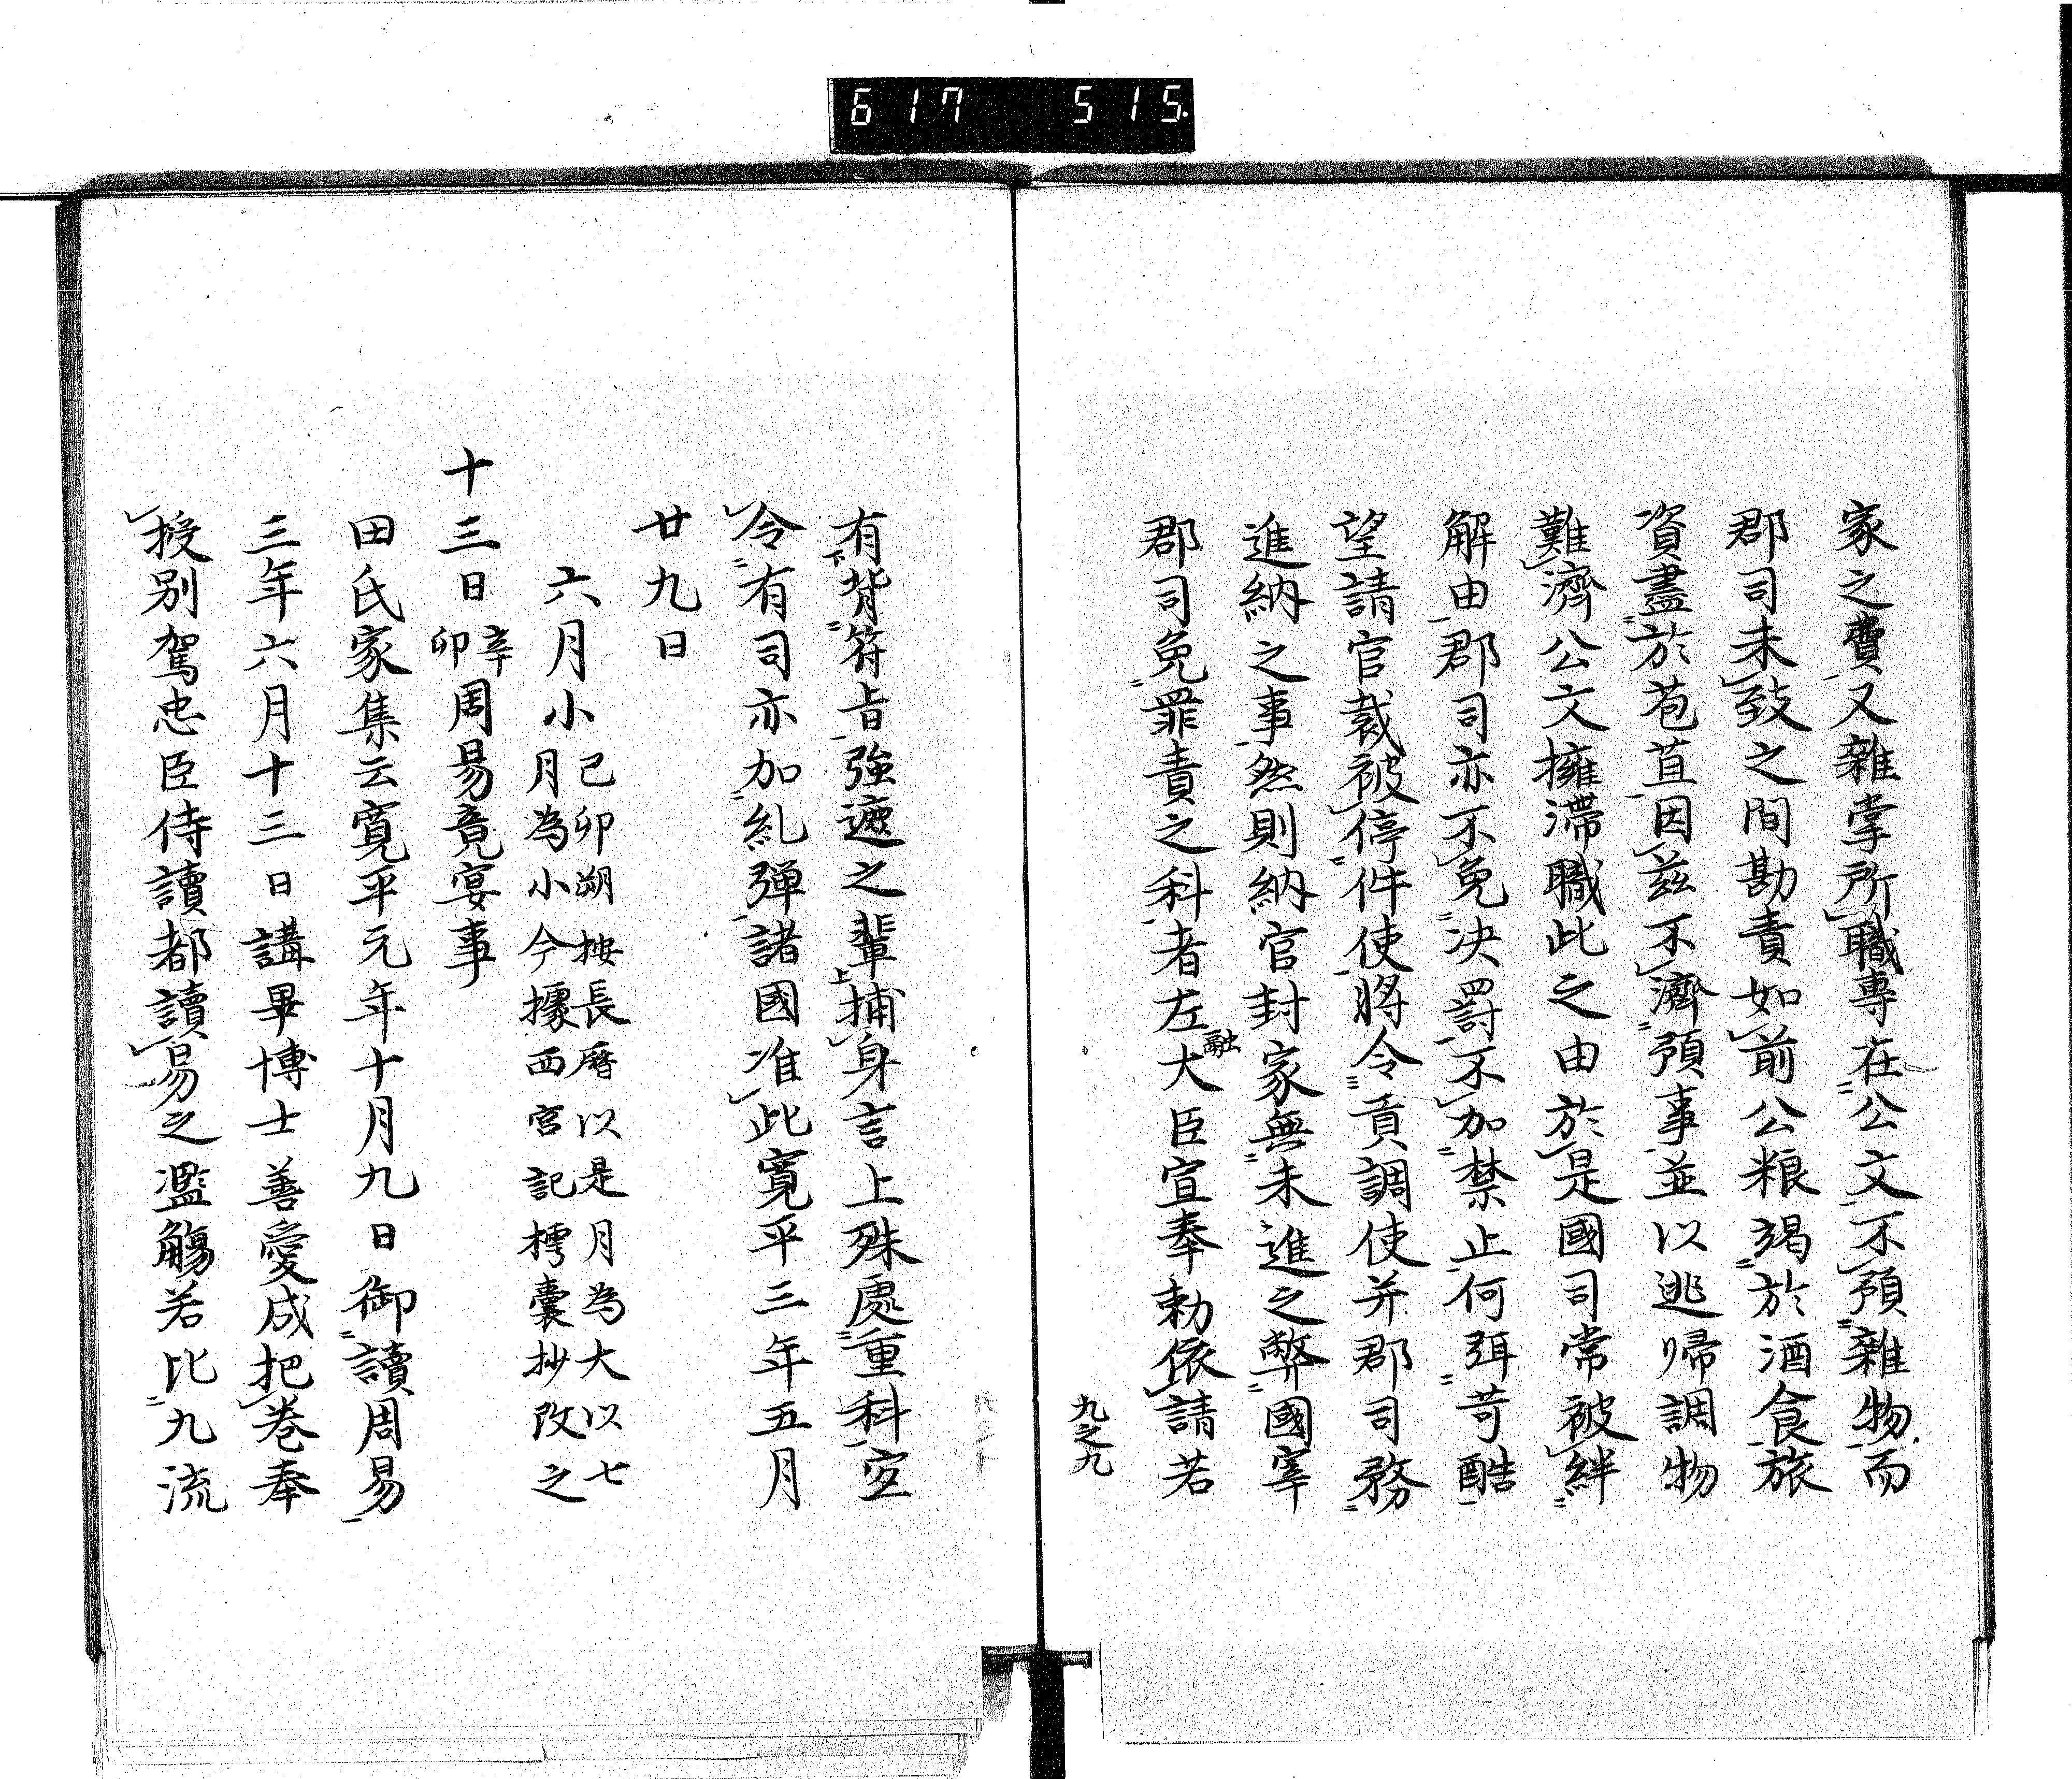 617 515
家之費又雜掌所職專在公文不預雜物而
郡司未致之間勘責如前公粮竭於酒食旅
資盡於苞苴因茲不濟預事並以逃帰調物
難濟公文擁滯職此之由於是國司常被絆
解由郡司亦不免决罰不加禁止何弭苛酷
望請官裁被停件使將令貢調使并郡司務
進納之事然則納官封家無未進之弊國宰
郡司免罪責之科者左大臣宣奉勅依請若
融
九之九
有背符旨強遮之輩捕身言上殊處重科宐
令有司亦加糺彈諸國准此寛平三年五月
廿九日
六月小己卯朔按長曆以是月為大以七
月為小今據西宮記樗囊抄改之
十三日辛卯周易竟宴事
田氏家集云寛平元年十月九日御讀周易
三年六月十三日講畢博士善愛成把卷奉
授別駕忠臣侍讀都讀易之濫觴若比九流